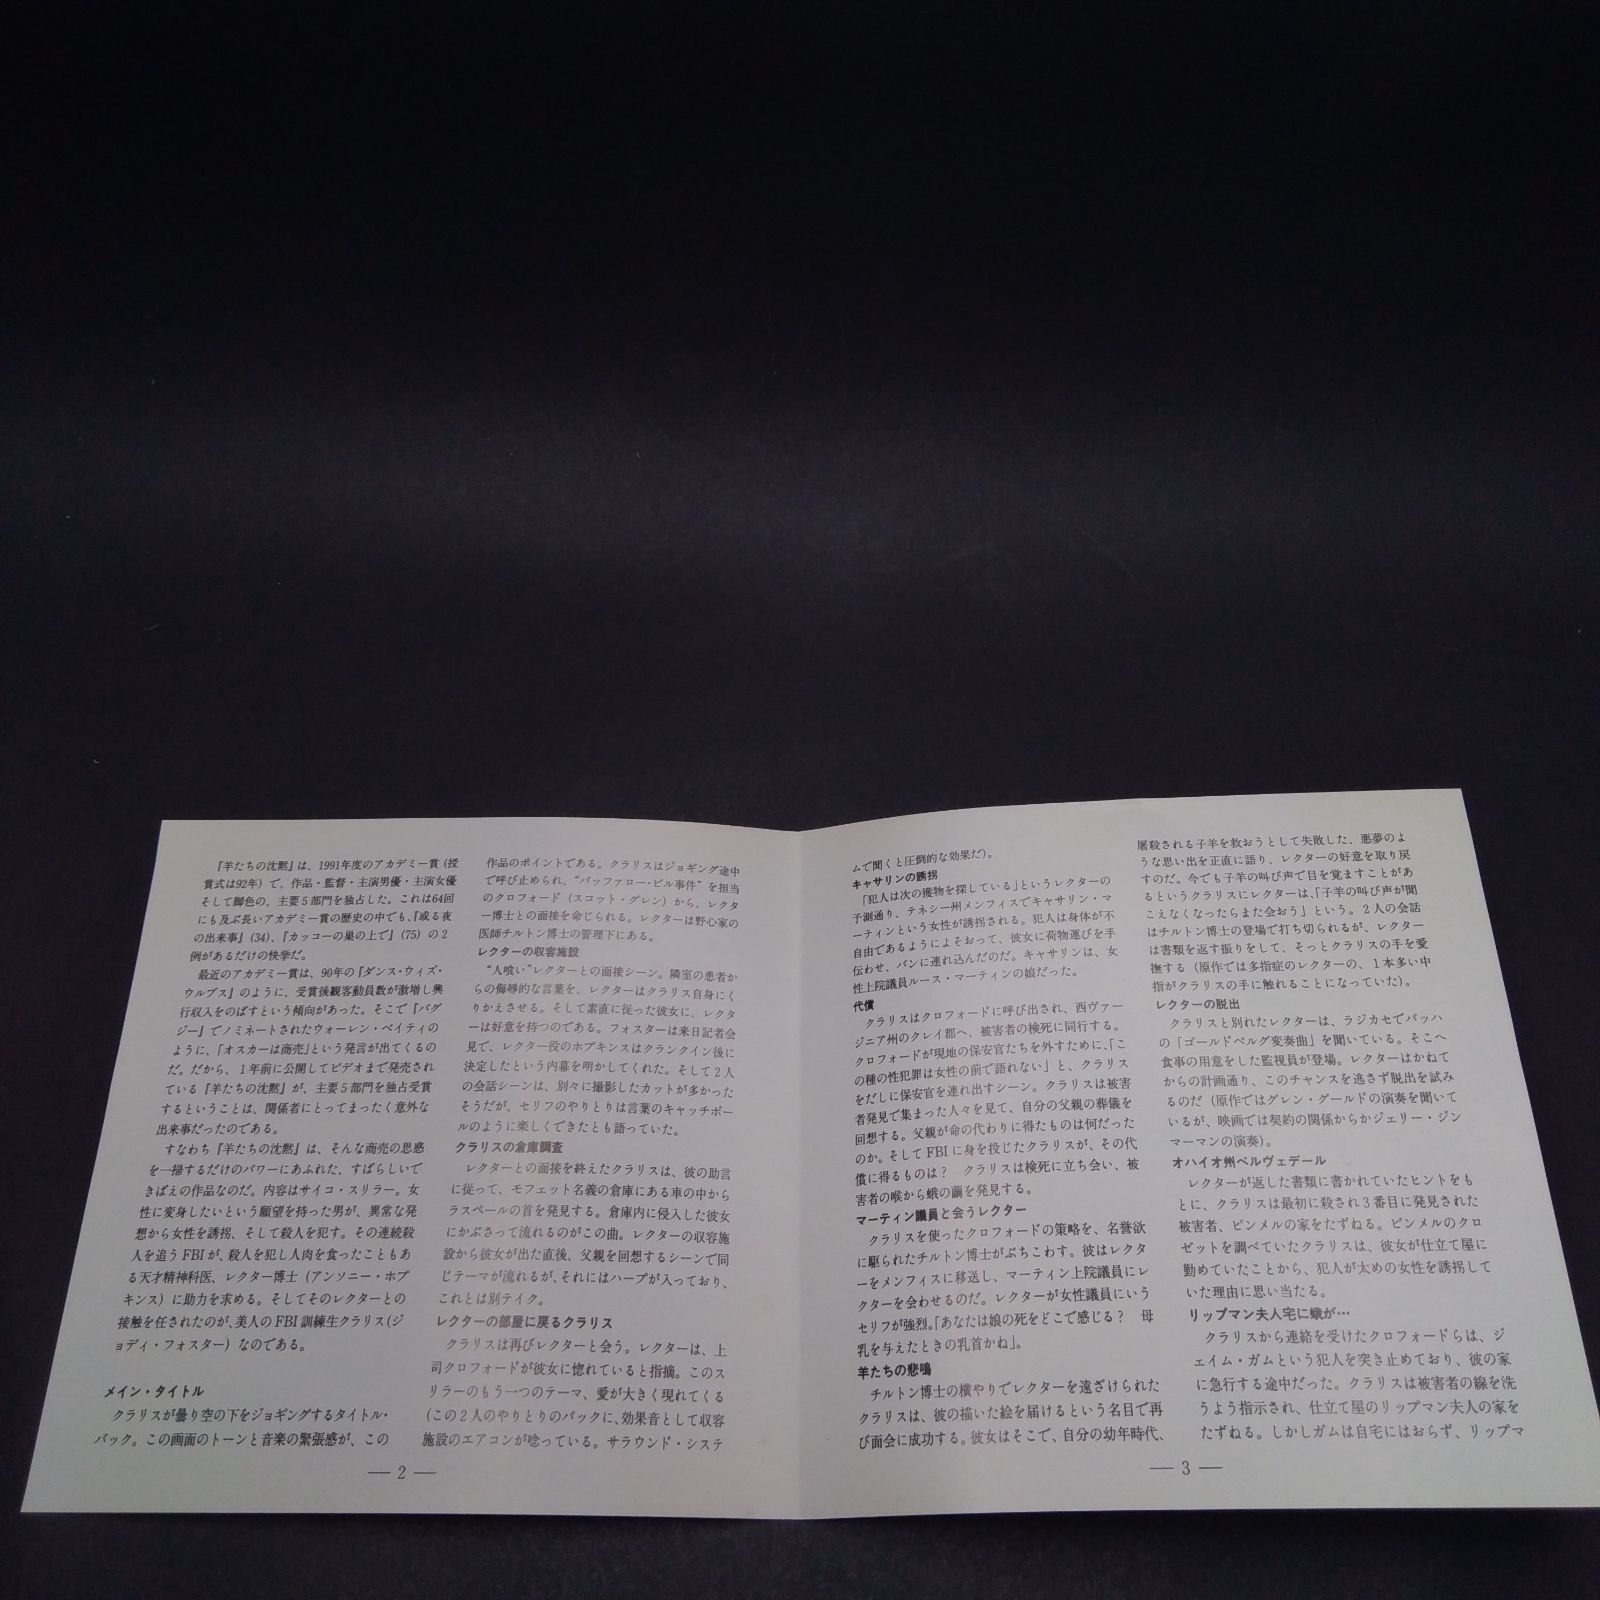 『羊たちの沈黙』は、1991年度のアカデミー賞(授
賞式は92年)で、作品・監督・主演男優・主演女優
そして脚色の、主要5部門を独占した。これは64回
にも及ぶ長いアカデミー賞の歴史の中でも、『或る夜
の出来事』(34)、『カッコーの巣の上で』(75)の2
例があるだけの快挙だ。
最近のアカデミー賞は、90年の『ダンス・ウィズ・
ウルブス』のように、受賞後観客動員数が激増し興
行収入をのばすという傾向があった。そこで『バグ
ジー』でノミネートされたウォーレン・ベイティの
ように、「オスカーは商売」という発言が出てくるの
だ。だから、1年前に公開してビデオまで発売され
ている『羊たちの沈黙』が、主要5部門を独占受賞
するということは、関係者にとってまったく意外な
出来事だったのである。
すなわち『羊たちの沈黙』は、そんな商売の思惑
を一掃するだけのパワーにあふれた、すばらしいで
きばえの作品なのだ。内容はサイコ・スリラー。女
性に変身したいという願望を持った男が、異常な発
想から女性を誘拐、そして殺人を犯す。その連続殺
人を追うFBIが、殺人を犯し人肉を食ったこともあ
る天才精神科医、レクター博士(アンソニー・ホプ
キンス)に助力を求める。そしてそのレクターとの
接触を任されたのが、美人のFBI訓練生クラリス(ジ
ョディ・フォスター)なのである。
メイン・タイトル
クラリスが曇り空の下をジョギングするタイトル・
バック。この画面のトーンと音楽の緊張感が、この
作品のポイントである。クラリスはジョギング途中
で呼び止められ、“バッファロー・ビル事件”を担当
のクロフォード(スコット・グレン)から、レクタ
ー博士との面接を命じられる。レクターは野心家の
医師チルトン博士の管理下にある。
レクターの収容施設
“人喰い”レクターとの面接シーン。隣室の患者か
らの侮辱的な言葉を、レクターはクラリス自身にく
りかえさせる。そして素直に従った彼女に、レクタ
ーは好意を持つのである。フォスターは来日記者会
見で、レクター役のホプキンスはクランクイン後に
決定したという内幕を明かしてくれた。そして2人
の会話シーンは、別々に撮影したカットが多かった
そうだが、セリフのやりとりは言葉のキャッチボー
ルのように楽しくできたとも語っていた。
クラリスの倉庫調査
レクターとの面接を終えたクラリスは、彼の助言
に従って、モフェット名義の倉庫にある車の中から
ラスペールの首を発見する。倉庫内に侵入した彼女
にかぶさって流れるのがこの曲。レクターの収容施
設から彼女が出た直後、父親を回想するシーンで同
じテーマが流れるが、それにはハープが入っており、
これとは別テイク。
レクターの部屋に戻るクラリス
クラリスは再びレクターと会う。レクターは、上
司クロフォードが彼女に惚れていると指摘。このス
リラーのもう一つのテーマ、愛が大きく現れてくる
(この2人のやりとりのバックに、効果音として収容
施設のエアコンが唸っている。サラウンド・システ
— 2 —
ムで聞くと圧倒的な効果だ)。
キャサリンの誘拐
「犯人は次の獲物を探している」というレクターの
予測通り、テネシー州メンフィスでキャサリン・マ
ーティンという女性が誘拐される。犯人は身体が不
自由であるようによそおって、彼女に荷物運びを手
伝わせ、バンに連れ込んだのだ。キャサリンは、女
性上院議員ルース・マーティンの娘だった。
代償
クラリスはクロフォードに呼び出され、西ヴァー
ジニア州のクレイ郡へ、被害者の検死に同行する。
クロフォードが現地の保安官たちを外すために、「こ
の種の性犯罪は女性の前で語れない」と、クラリス
をだしに保安官を連れ出すシーン。クラリスは被害
者発見で集まった人々を見て、自分の父親の葬儀を
回想する。父親が命の代わりに得たものは何だった
のか。そしてFBIに身を投じたクラリスが、その代
償に得るものは? クラリスは検死に立ち会い、被
害者の喉から蛾の繭を発見する。
マーティン議員と会うレクター
クラリスを使ったクロフォードの策略を、名誉欲
に駆られたチルトン博士がぶちこわす。彼はレクタ
ーをメンフィスに移送し、マーティン上院議員にレ
クターを会わせるのだ。レクターが女性議員にいう
セリフが強烈。「あなたは娘の死をどこで感じる? 母
乳を与えたときの乳首かね」。
羊たちの悲鳴
チルトン博士の横やりでレクターを遠ざけられた
クラリスは、彼の描いた絵を届けるという名目で再
び面会に成功する。彼女はそこで、自分の幼年時代、
屠殺される子羊を救おうとして失敗した、悪夢のよ
うな思い出を正直に語り、レクターの好意を取り戻
すのだ。今でも子羊の叫び声で目を覚ますことがあ
るというクラリスにレクターは、「子羊の叫び声が聞
こえなくなったらまた会おう」という。2人の会話
はチルトン博士の登場で打ち切られるが、レクター
は書類を返す振りをして、そっとクラリスの手を愛
撫する(原作では多指症のレクターの、1本多い中
指がクラリスの手に触れることになっていた)。
レクターの脱出
クラリスと別れたレクターは、ラジカセでバッハ
の「ゴールドベルグ変奏曲」を聞いている。そこへ
食事の用意をした監視員が登場。レクターはかねて
からの計画通り、このチャンスを逃さず脱出を試み
るのだ(原作ではグレン・グールドの演奏を聞いて
いるが、映画では契約の関係からかジェリー・ジン
マーマンの演奏)。
オハイオ州ベルヴェデール
レクターが返した書類に書かれていたヒントをも
とに、クラリスは最初に殺され3番目に発見された
被害者、ビンメルの家をたずねる。ビンメルのクロ
ゼットを調べていたクラリスは、彼女が仕立て屋に
勤めていたことから、犯人が太めの女性を誘拐して
いた理由に思い当たる。
リップマン夫人宅に蛾が…
クラリスから連絡を受けたクロフォードらは、ジ
ェイム・ガムという犯人を突き止めており、彼の家
に急行する途中だった。クラリスは被害者の線を洗
うよう指示され、仕立て屋のリップマン夫人の家を
たずねる。しかしガムは自宅にはおらず、リップマ
— 3 —